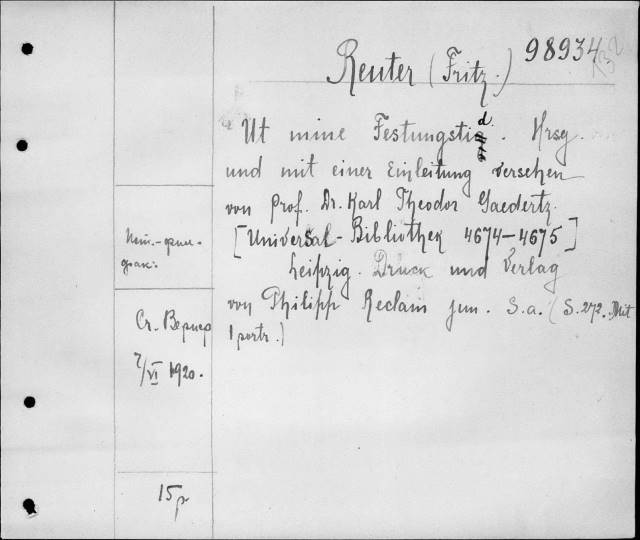 98934
Reuter (Fritz.)
Ut mine Festungstid. Hrsg.
und mit einer Einleitung versehen
von Prof. Dr. Karl Theodor Gaedertz.
[Universal-Bibliothek 4674–4675]
Leipzig. Druck und Verlag
von Philipp Reclam jun. S.a. (S. 272. Mit
1 portr.)
Ст. Вернер
7/VI 1920.
15р